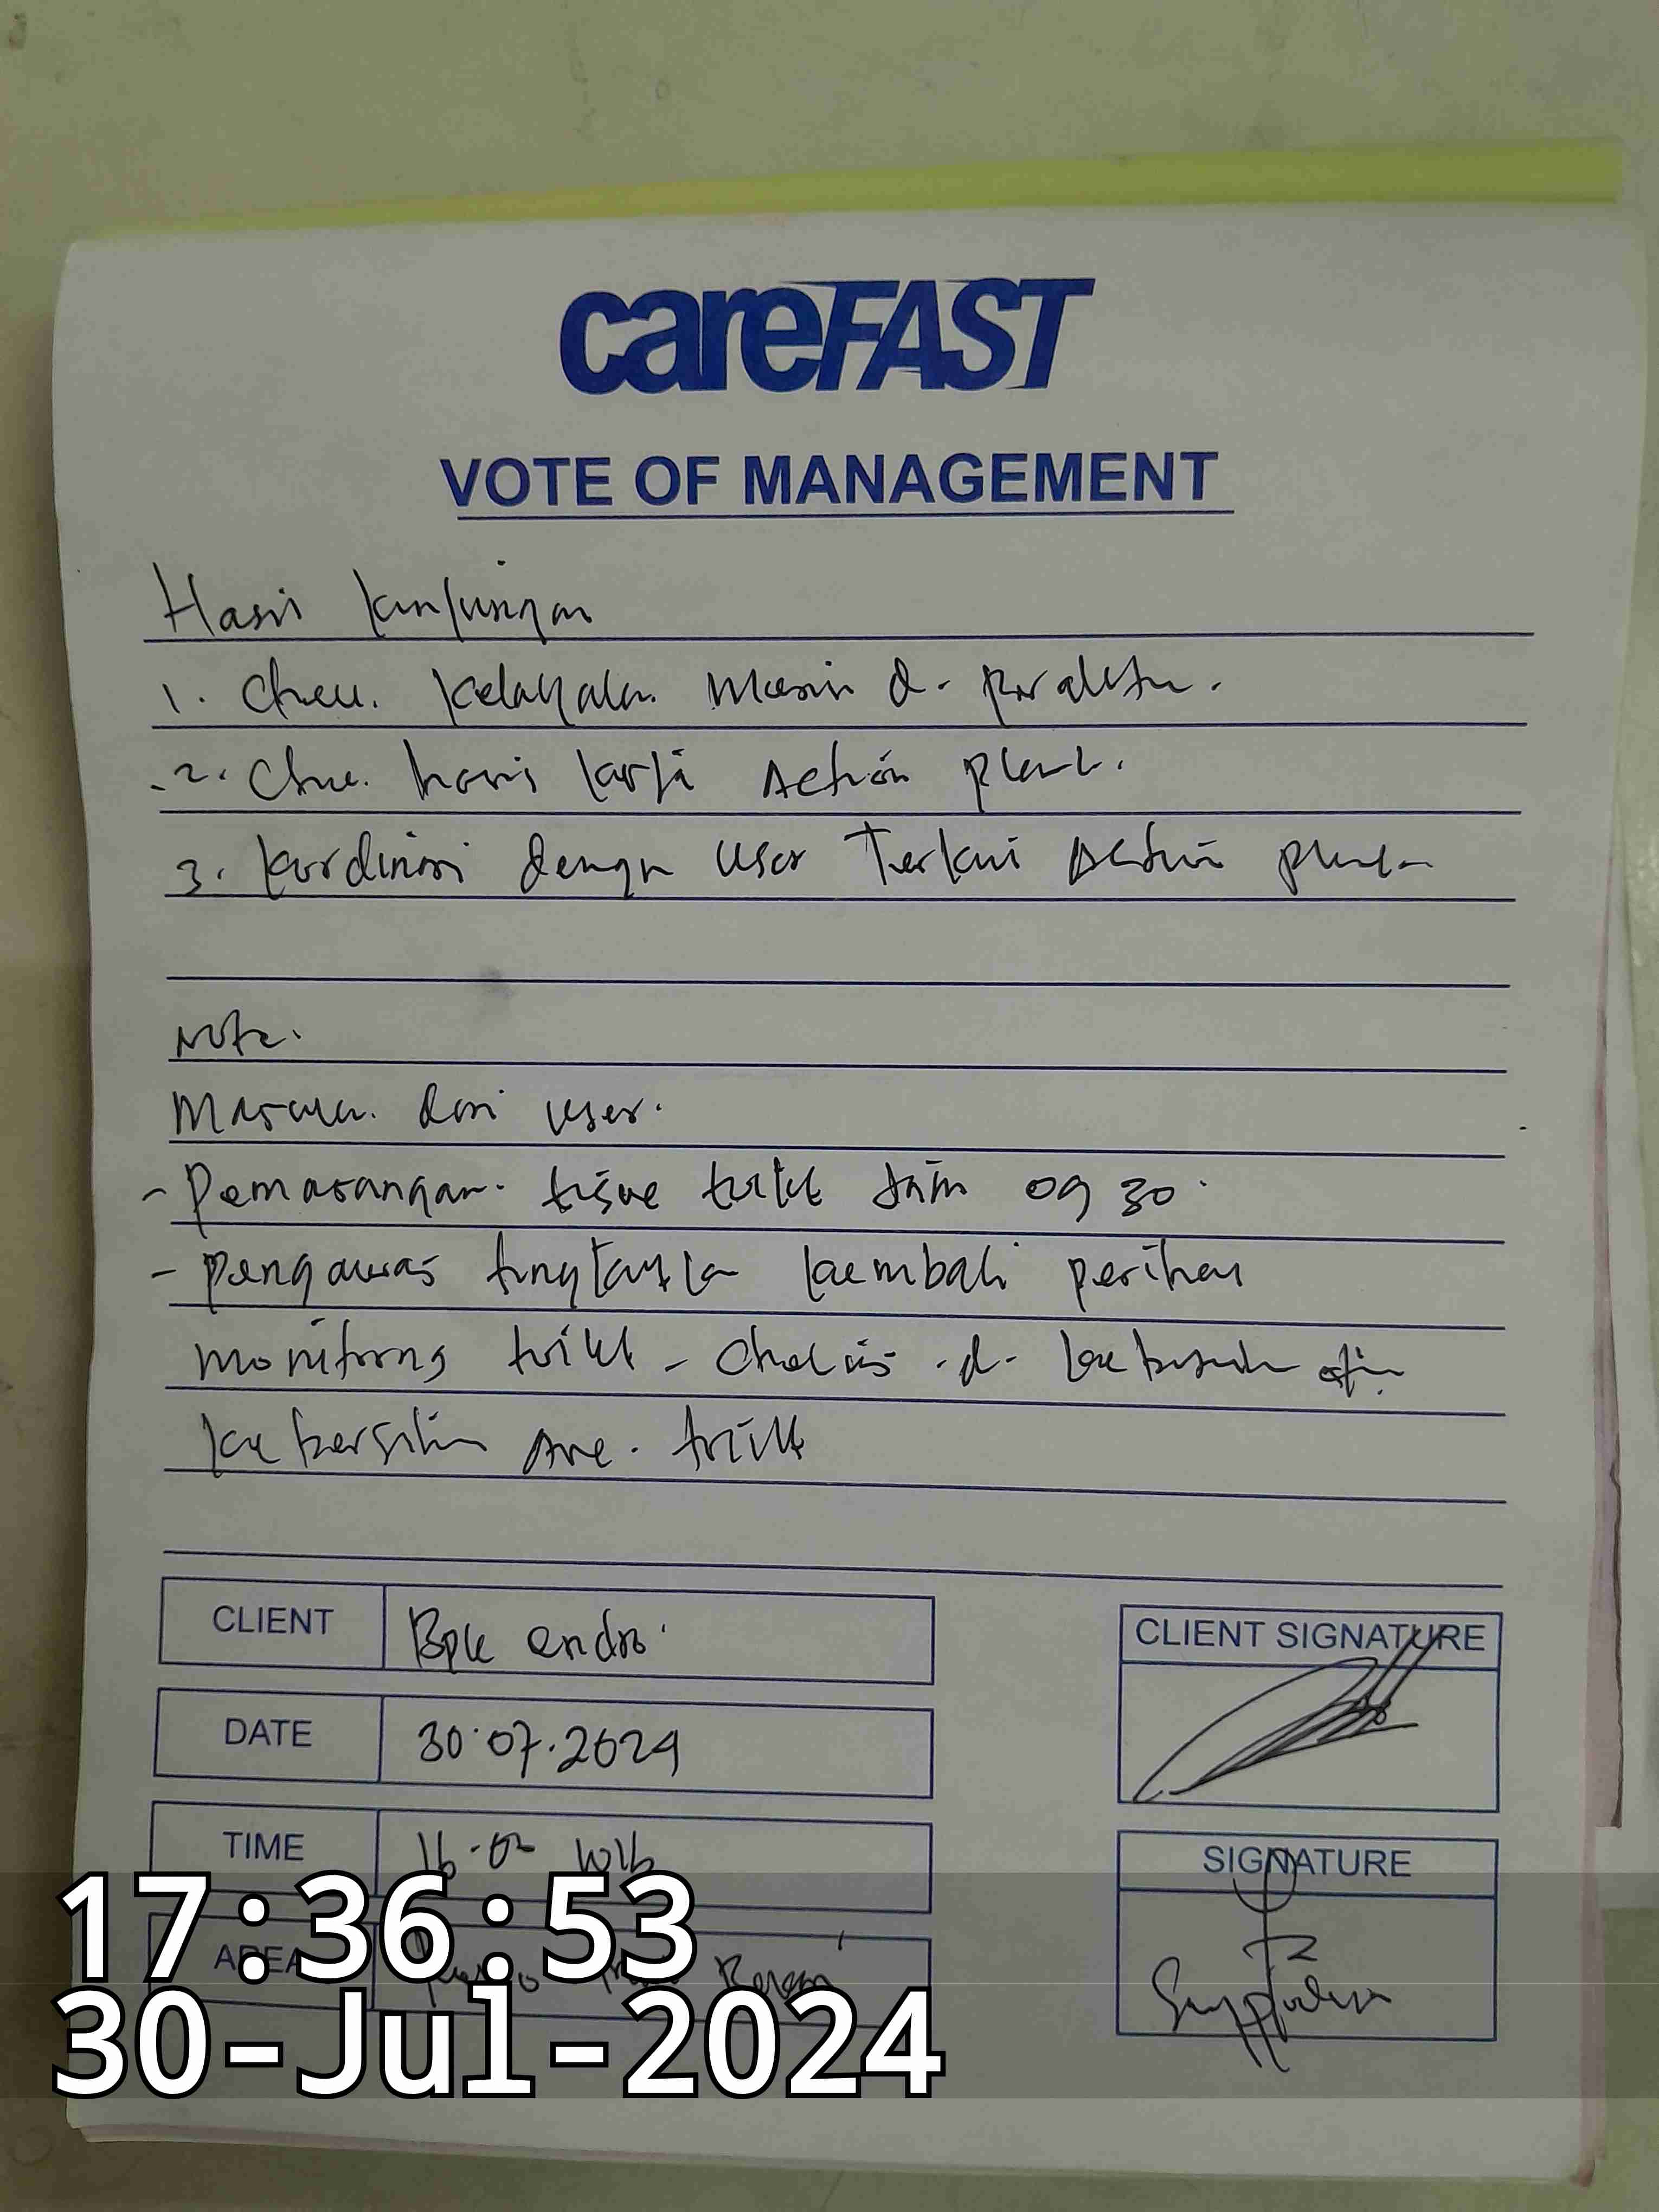 careFAST
VOTE OF MANAGEMENT
Hasil kunjungan
1. Chek. Kelayakan Mesin &
2. Chek. hasil kerja Action plant.
3. Kordinasi dengan User Terkait Action
Note.
Masukan dari user.
- Pemasangan. tisue toilet jam 09 30
- pengawas tingkatkan kembali perihal
monitoring toilet - &
kebersihan Are. toilet
CLIENT Bpk endro
CLIENT SIGNATURE
DATE 30.07.2024
TIME 16.00 WIB
SIGNATURE
AREA
17:36:53
30-Jul-2024